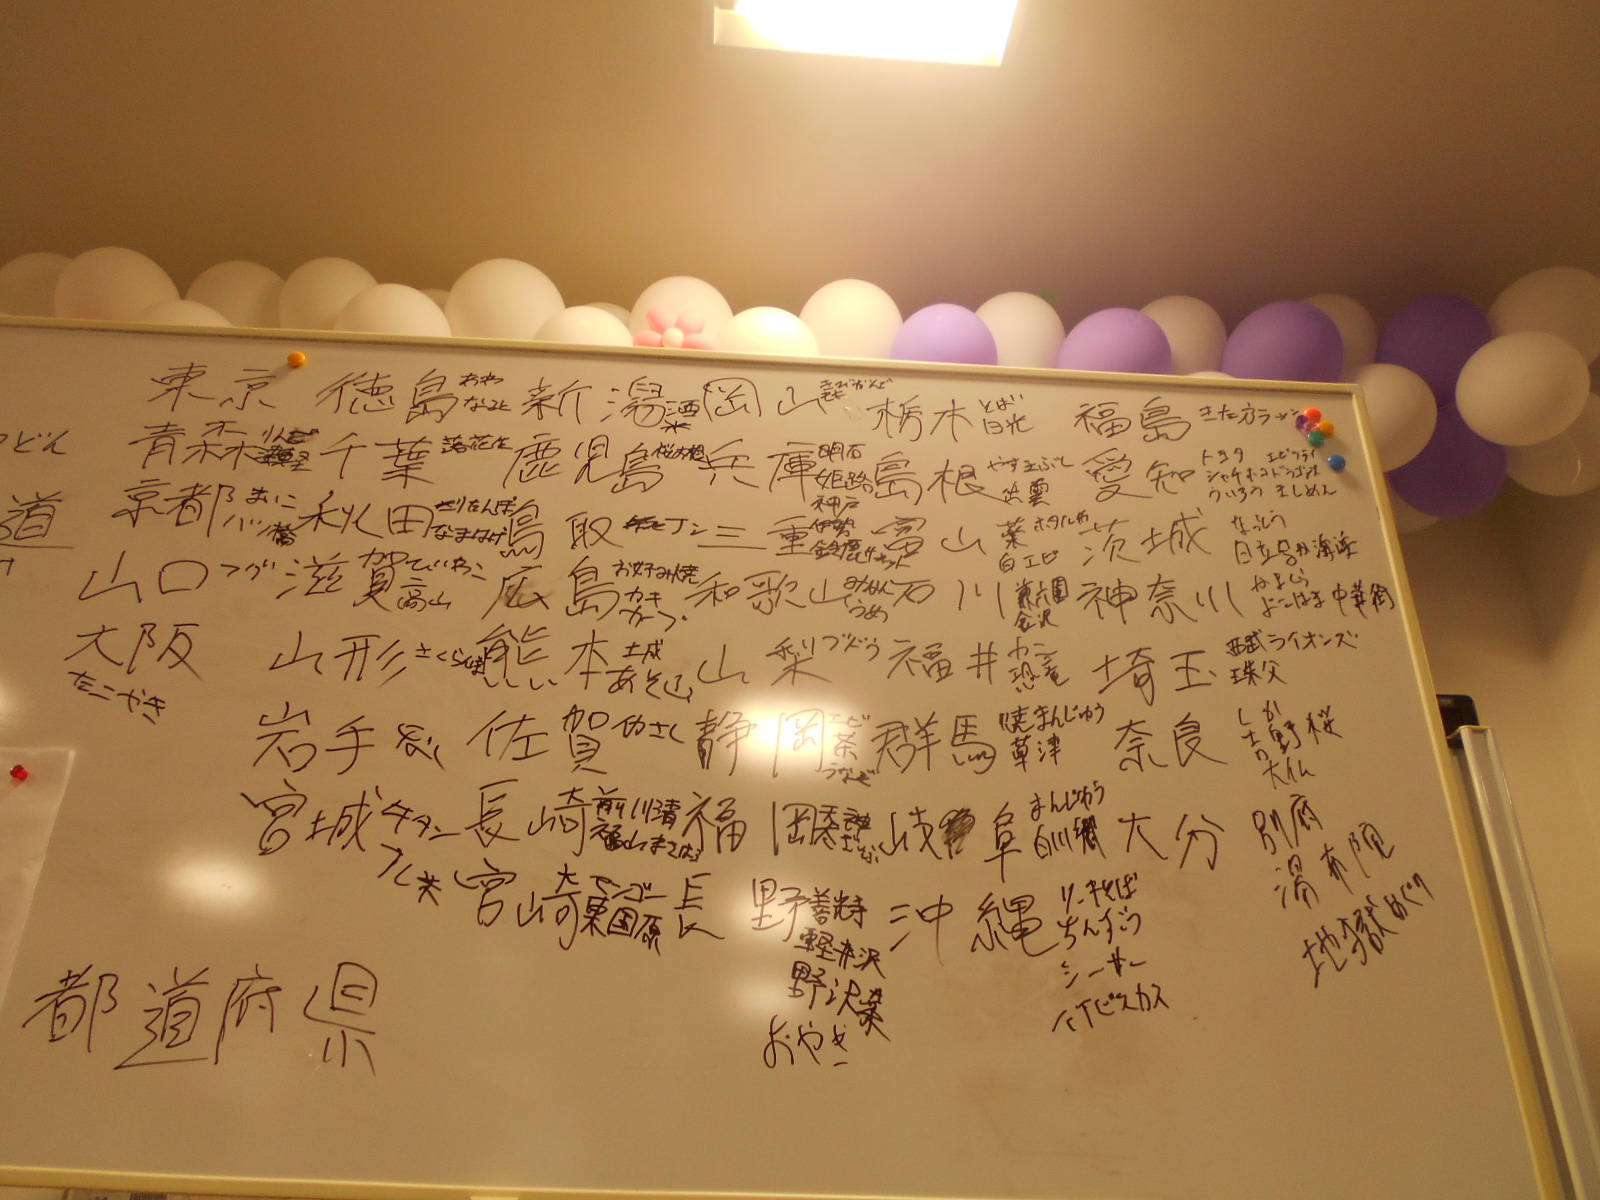 東京 徳島 あわ なると 新潟 酒 米 岡山 きびだんご 栃木 とば 日光 福島 きた方ラーメン
どん 青森 りんご 千葉 落花生 鹿児島 桜大根 兵庫 明石 姫路 神戸 島根 やすきぶし 出雲 愛知 トヨタ エビフライ シャチホコ ドラゴンズ ういろう きしめん
道 京都 まいこ 秋田 きりたんぽ なまはげ 鳥取 三重 伊勢 鈴鹿サーキット 富山 薬 ホタルイカ 白エビ 茨城 なっとう 日立 海浜
山口 フグ 滋賀 高山 広島 お好み焼 カキ カープ 和歌山 みかん うめ 石川 兼六園 金沢 神奈川 かまくら よこはま 中華街
大阪 たこやき 山形 さくらんぼ 熊本 城 あそ山 山梨 ぶどう 福井 カニ 恐竜 埼玉 西武ライオンズ 珠父
岩手 佐賀 静岡 エビ 茶 うなぎ 群馬 焼まんじゅう 草津 奈良 しか 吉野桜 大仏
宮城 牛タン 長崎 前川清 福山まさはる 福岡 岐阜 まんじゅう 白川郷 大分 別府 湯布院 地獄めぐり
宮崎 マンゴー 東国原 長野 善光寺 軽井沢 野沢菜 おやき 沖縄 ソーキそば ちんすこう シーサー ハイビスカス
都道府県